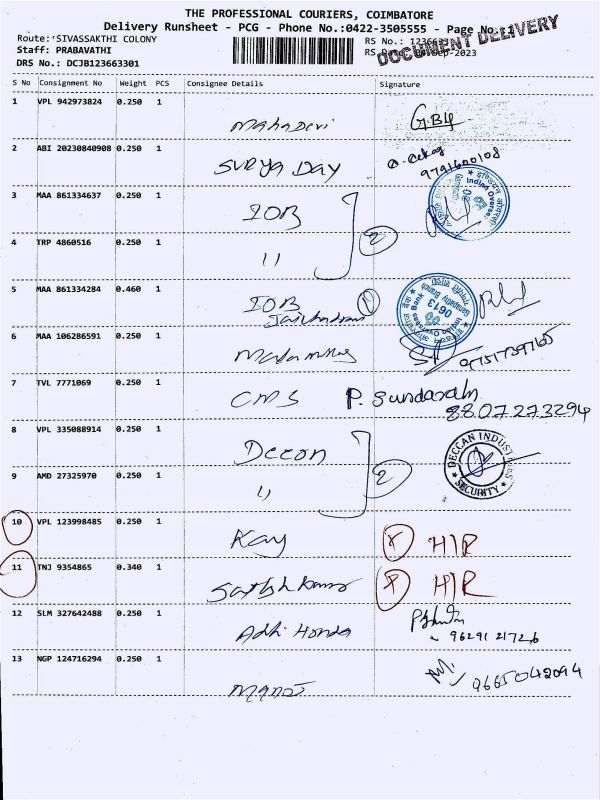 THE PROFESSIONAL COURIERS, COIMBATORE
Delivery Runsheet - PCG - Phone No.:0422-3505555 - Page No.:1
DOCUMENT DELIVERY
Route: SIVASSAKTHI COLONY
RS No.: 1236633
Staff: PRABAVATHI
RS Sep-2023
DRS No.: DCJB123663301
S No Consignment No Weight PCS Consignee Details Signature
1 VPL 942973824 0.250 1 Mahadevi
2 ABI 20230840908 0.250 1 SURYA DAY 9791600108
3 MAA 861334637 0.250 1 IOB
4 TRP 4860516 0.250 1 " 2
5 MAA 861334284 0.460 1 IOB 1
0613
6 MAA 106286591 0.250 1
7 TVL 7771069 0.250 1 CMS P. Sundaram
8807273294
8 VPL 335088914 0.250 1 Deccon
DECCAN INDUSTRIES SECURITY
9 AMD 27325970 0.250 1 " 2
10 VPL 123998485 0.250 1 Kay
11 TNJ 9354865 0.340 1 Sathish Kumar
12 SLM 327642488 0.250 1 Adhi Honda
13 NGP 124716294 0.250 1 Manoj 9665042094